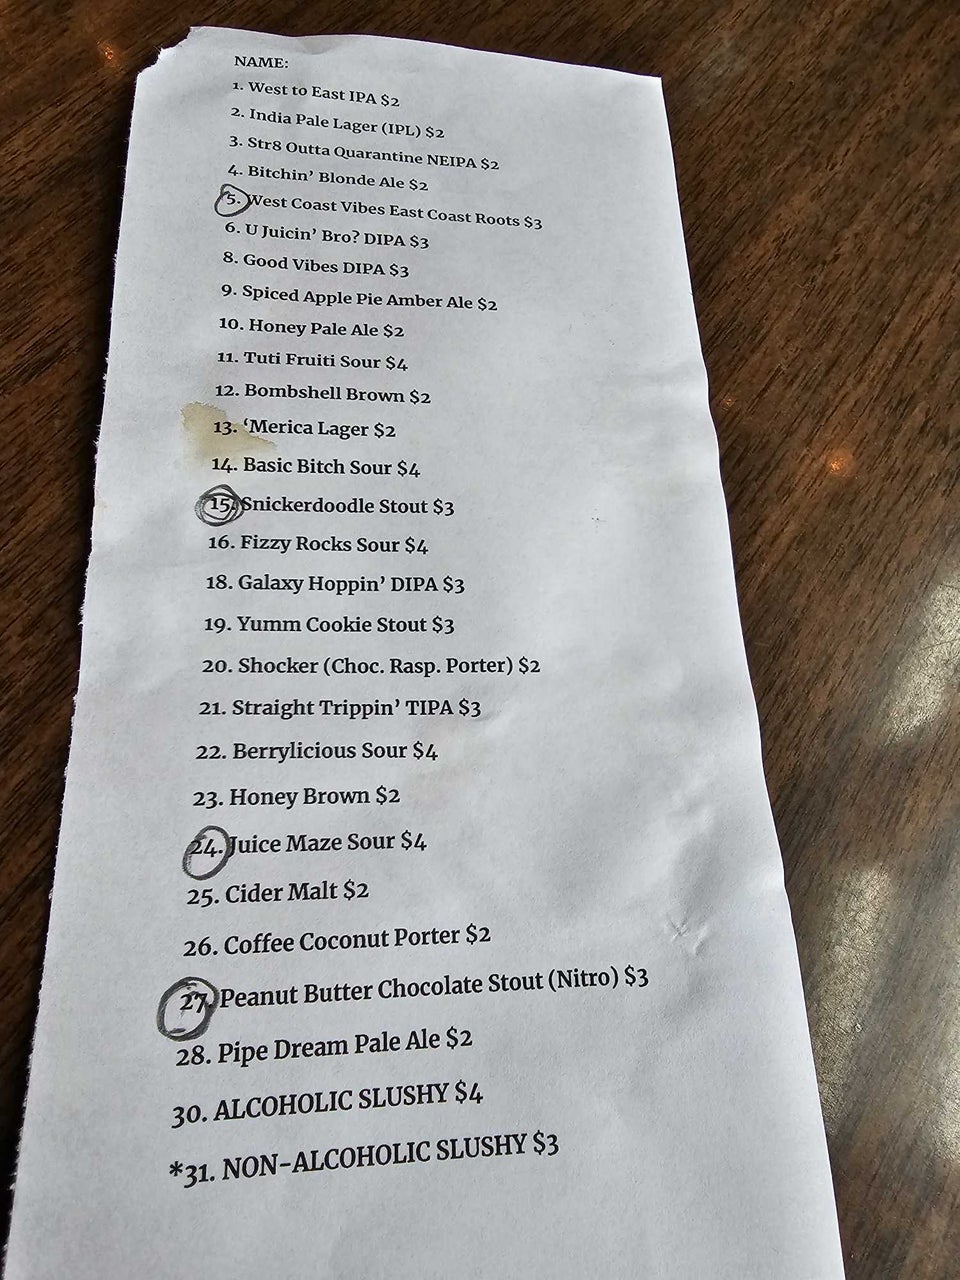 NAME:
1. West to East IPA $2
2. India Pale Lager (IPL) $2
3. Str8 Outta Quarantine NEIPA $2
4. Bitchin’ Blonde Ale $2
5. West Coast Vibes East Coast Roots $3
6. U Juicin’ Bro? DIPA $3
8. Good Vibes DIPA $3
9. Spiced Apple Pie Amber Ale $2
10. Honey Pale Ale $2
11. Tuti Fruiti Sour $4
12. Bombshell Brown $2
13. ‘Merica Lager $2
14. Basic Bitch Sour $4
15. Snickerdoodle Stout $3
16. Fizzy Rocks Sour $4
18. Galaxy Hoppin’ DIPA $3
19. Yumm Cookie Stout $3
20. Shocker (Choc. Rasp. Porter) $2
21. Straight Trippin’ TIPA $3
22. Berrylicious Sour $4
23. Honey Brown $2
24. Juice Maze Sour $4
25. Cider Malt $2
26. Coffee Coconut Porter $2
27. Peanut Butter Chocolate Stout (Nitro) $3
28. Pipe Dream Pale Ale $2
30. ALCOHOLIC SLUSHY $4
*31. NON-ALCOHOLIC SLUSHY $3